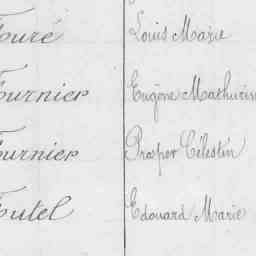 Fouré Louis Marie
Fournier Eugène Mathurin
Fournier Prosper Célestin
Futel Edouard Marie